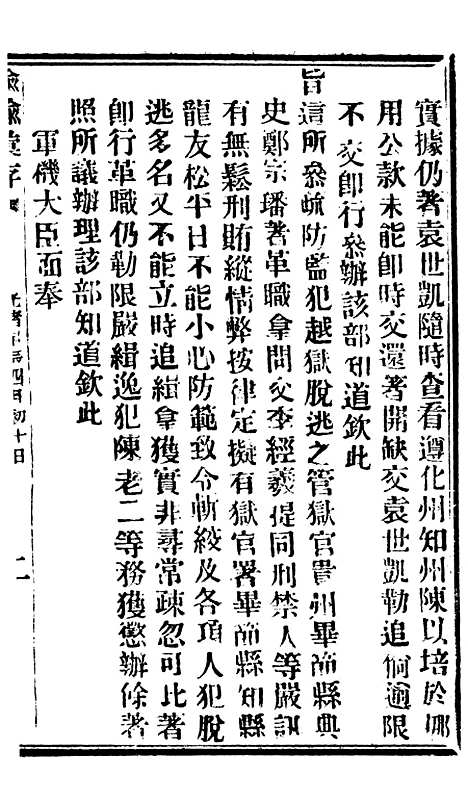 實據仍著袁世凱隨時查看遵化州知州陳以培於挪
用公款未能即時交還著開缺交袁世凱勒追倘逾限
不交即行叅辦該部知道欽此
旨這所叅疏防監犯越獄脫逃之管獄官貴州畢節縣典
史鄭宗璠著革職拿問交李經羲提同刑禁人等嚴訊
有無鬆刑賄縱情弊按律定擬有獄官署畢節縣知縣
龍友松平日不能小心防範致令斬絞及各項人犯脫
逃多名又不能立時追緝拿獲實非尋常疎忽可比著
即行革職仍勒限嚴緝逸犯陳老二等務獲懲辦餘著
照所議辦理該部知道欽此
軍機大臣面奉
諭 彙存
四月初十日
二